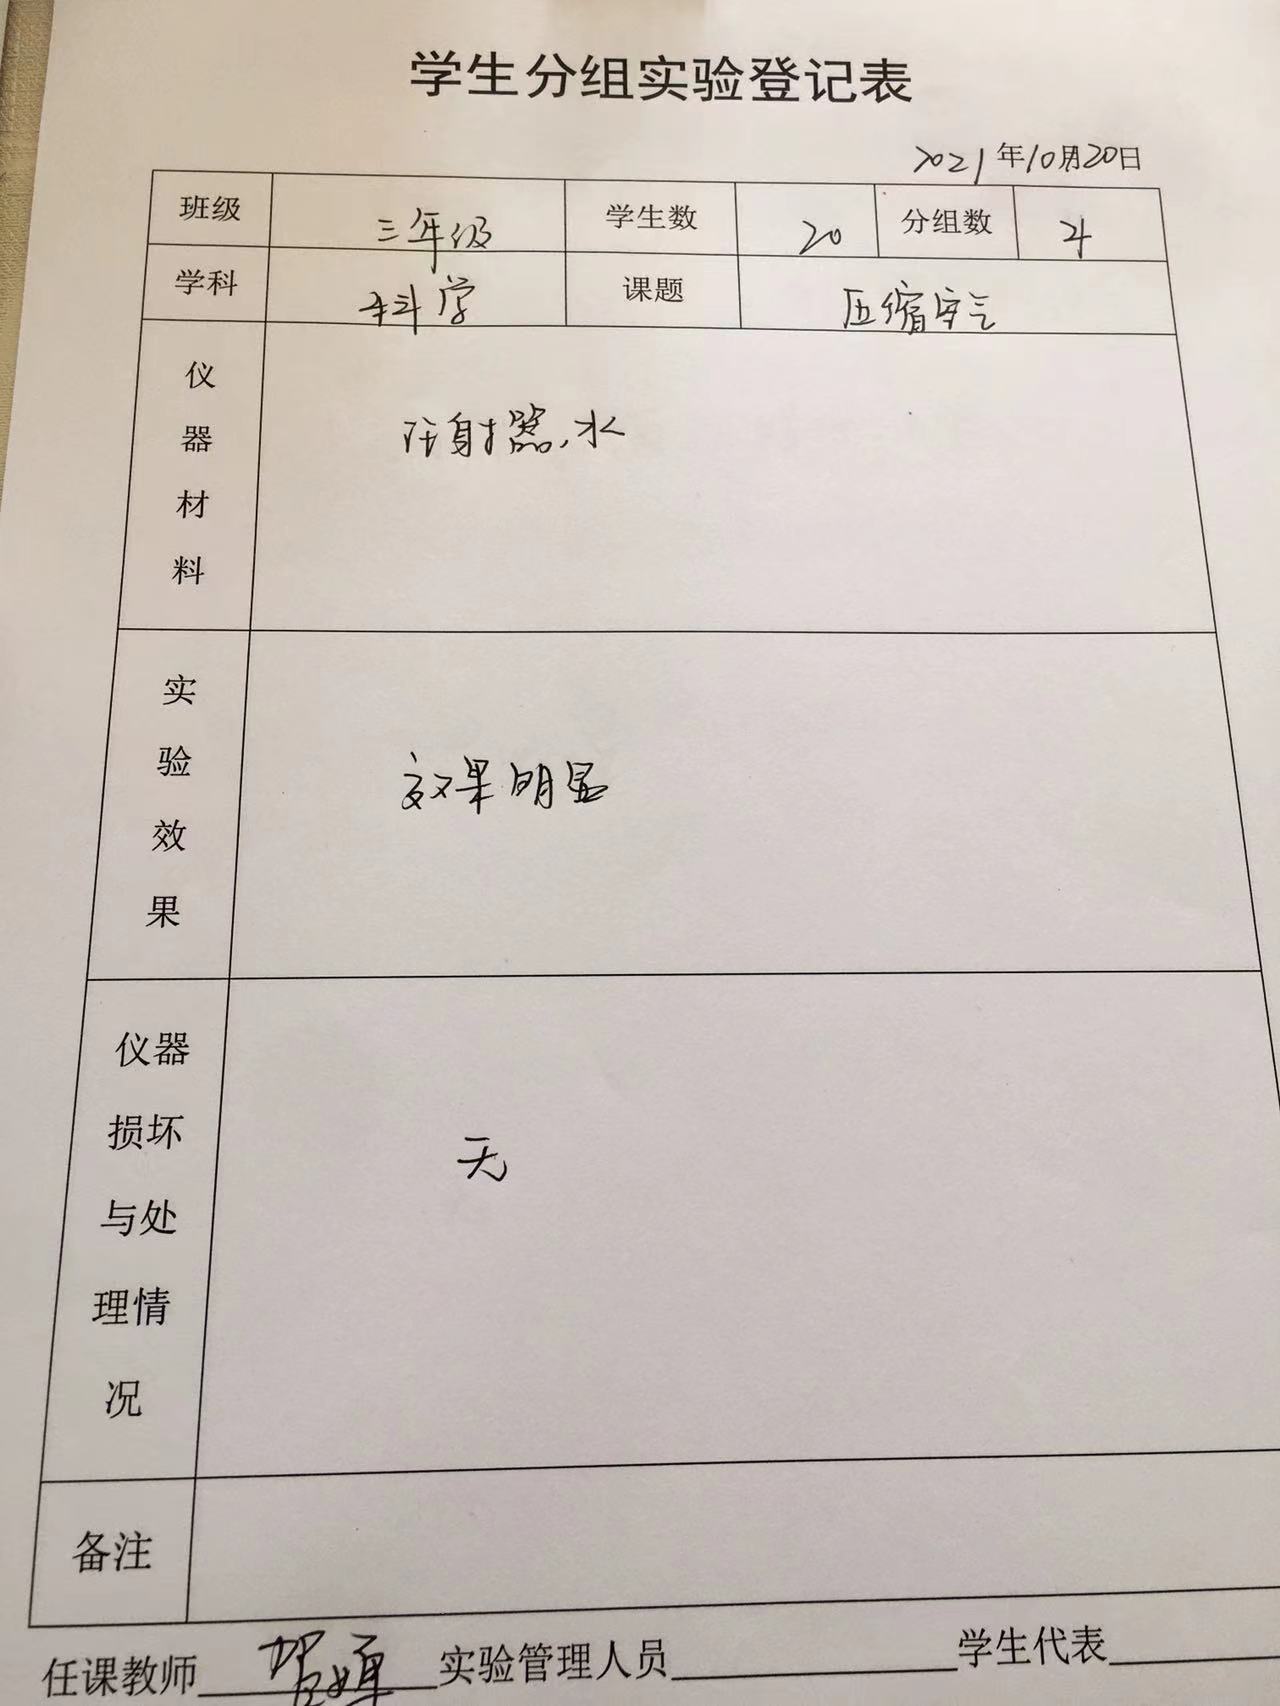 学生分组实验登记表
2021年10月20日
班级 三年级 学生数 20 分组数 4
学科 科学 课题 压缩空气
仪器材料 注射器,水
实验效果 效果明显
仪器损坏与处理情况 无
备注
任课教师 实验管理人员 学生代表